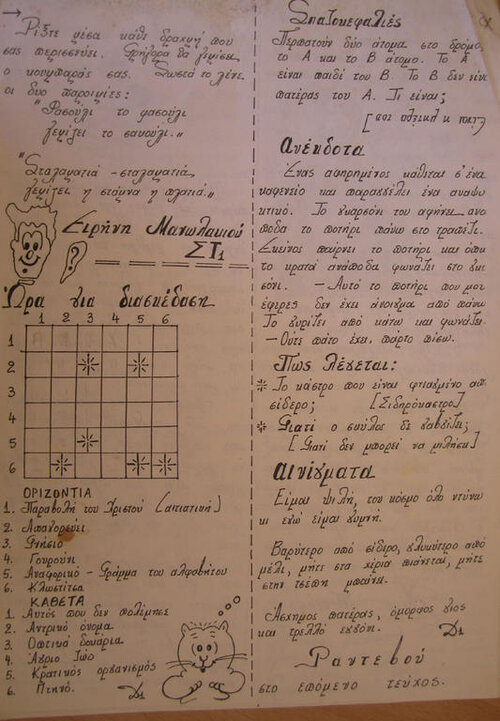 Ρίξτε μέσα κάθε δραχμή που
σας περισσεύει. Γρήγορα θα γεμίσει
ο κουμπαράς σας. Σωστά το λένε
οι δύο παροιμίες:
"Φασούλι το φασούλι
γεμίζει το σακούλι."
"Σταλαματιά - σταλαματιά
γεμίζει η στάμνα η πλατιά."
Ειρήνη Μανωλακιού
ΣΤ1
Ώρα για διασκέδαση
1 2 3 4 5 6
1
2
3
4
5
6
ΟΡΙΖΟΝΤΙΑ
1. Παραβολή του Χριστού (αιτιατική)
2. Απαγορεύει
3. Γνήσιο
4. Γουρούνι
5. Αναφορικό - Γράμμα του αλφαβήτου
6. Κλωτσιά
ΚΑΘΕΤΑ
1. Αυτός που δεν πολέμησε
2. Αντρικό όνομα
3. Οπτικά όργανα
4. Άγριο ζώο
5. Κρατικός οργανισμός
6. Πτηνό.
Δ1
Σπαζοκεφαλιές
Περπατούν δύο άτομα στο δρόμο,
το Α και το Β άτομο. Το Α
είναι παιδί του Β. Το Β δεν είναι
πατέρας του Α. Τι είναι;
[Είναι η μητέρα του]
Ανέκδοτα
Ένας αφηρημένος κάθεται σ' ένα
καφενείο και παραγγέλει ένα αναψυ
κτικό. Το γκαρσόνι του αφήνει ανα
ποδα το ποτήρι πάνω στο τραπέζι.
Εκείνος παίρνει το ποτήρι και όπως
το κρατά ανάποδα φωνάζει στο γκαρ
σόνι. - Αυτό το ποτήρι που μου
έφερες δεν έχει άνοιγμα από πάνω
Το γυρίζει από κάτω και φωνάζει.
- Ούτε πάτο έχει, πάρτο πίσω.
Πως λέγεται:
Το κάστρο που είναι φτιαγμένο από
σίδερο; [Σιδηρόκαστρο]
Γιατί ο σκύλος δε γαβγίζει;
[Γιατί δεν μπορεί να μιλήσει]
Αινίγματα
Είμαι ψιλή, τον κόσμο όλο ντύνω
κι εγώ είμαι γυμνή.
Βαρύτερο από σίδερο, γλυκύτερο από
μέλι, μήτε στα χέρια πιάνεται, μήτε
στην τσέπη μπαίνει.
Άσχημος πατέρας, όμορφος γιος
και τρελλό εγγόνι. Δ1
Ραντεβού
στο επόμενο τεύχος.